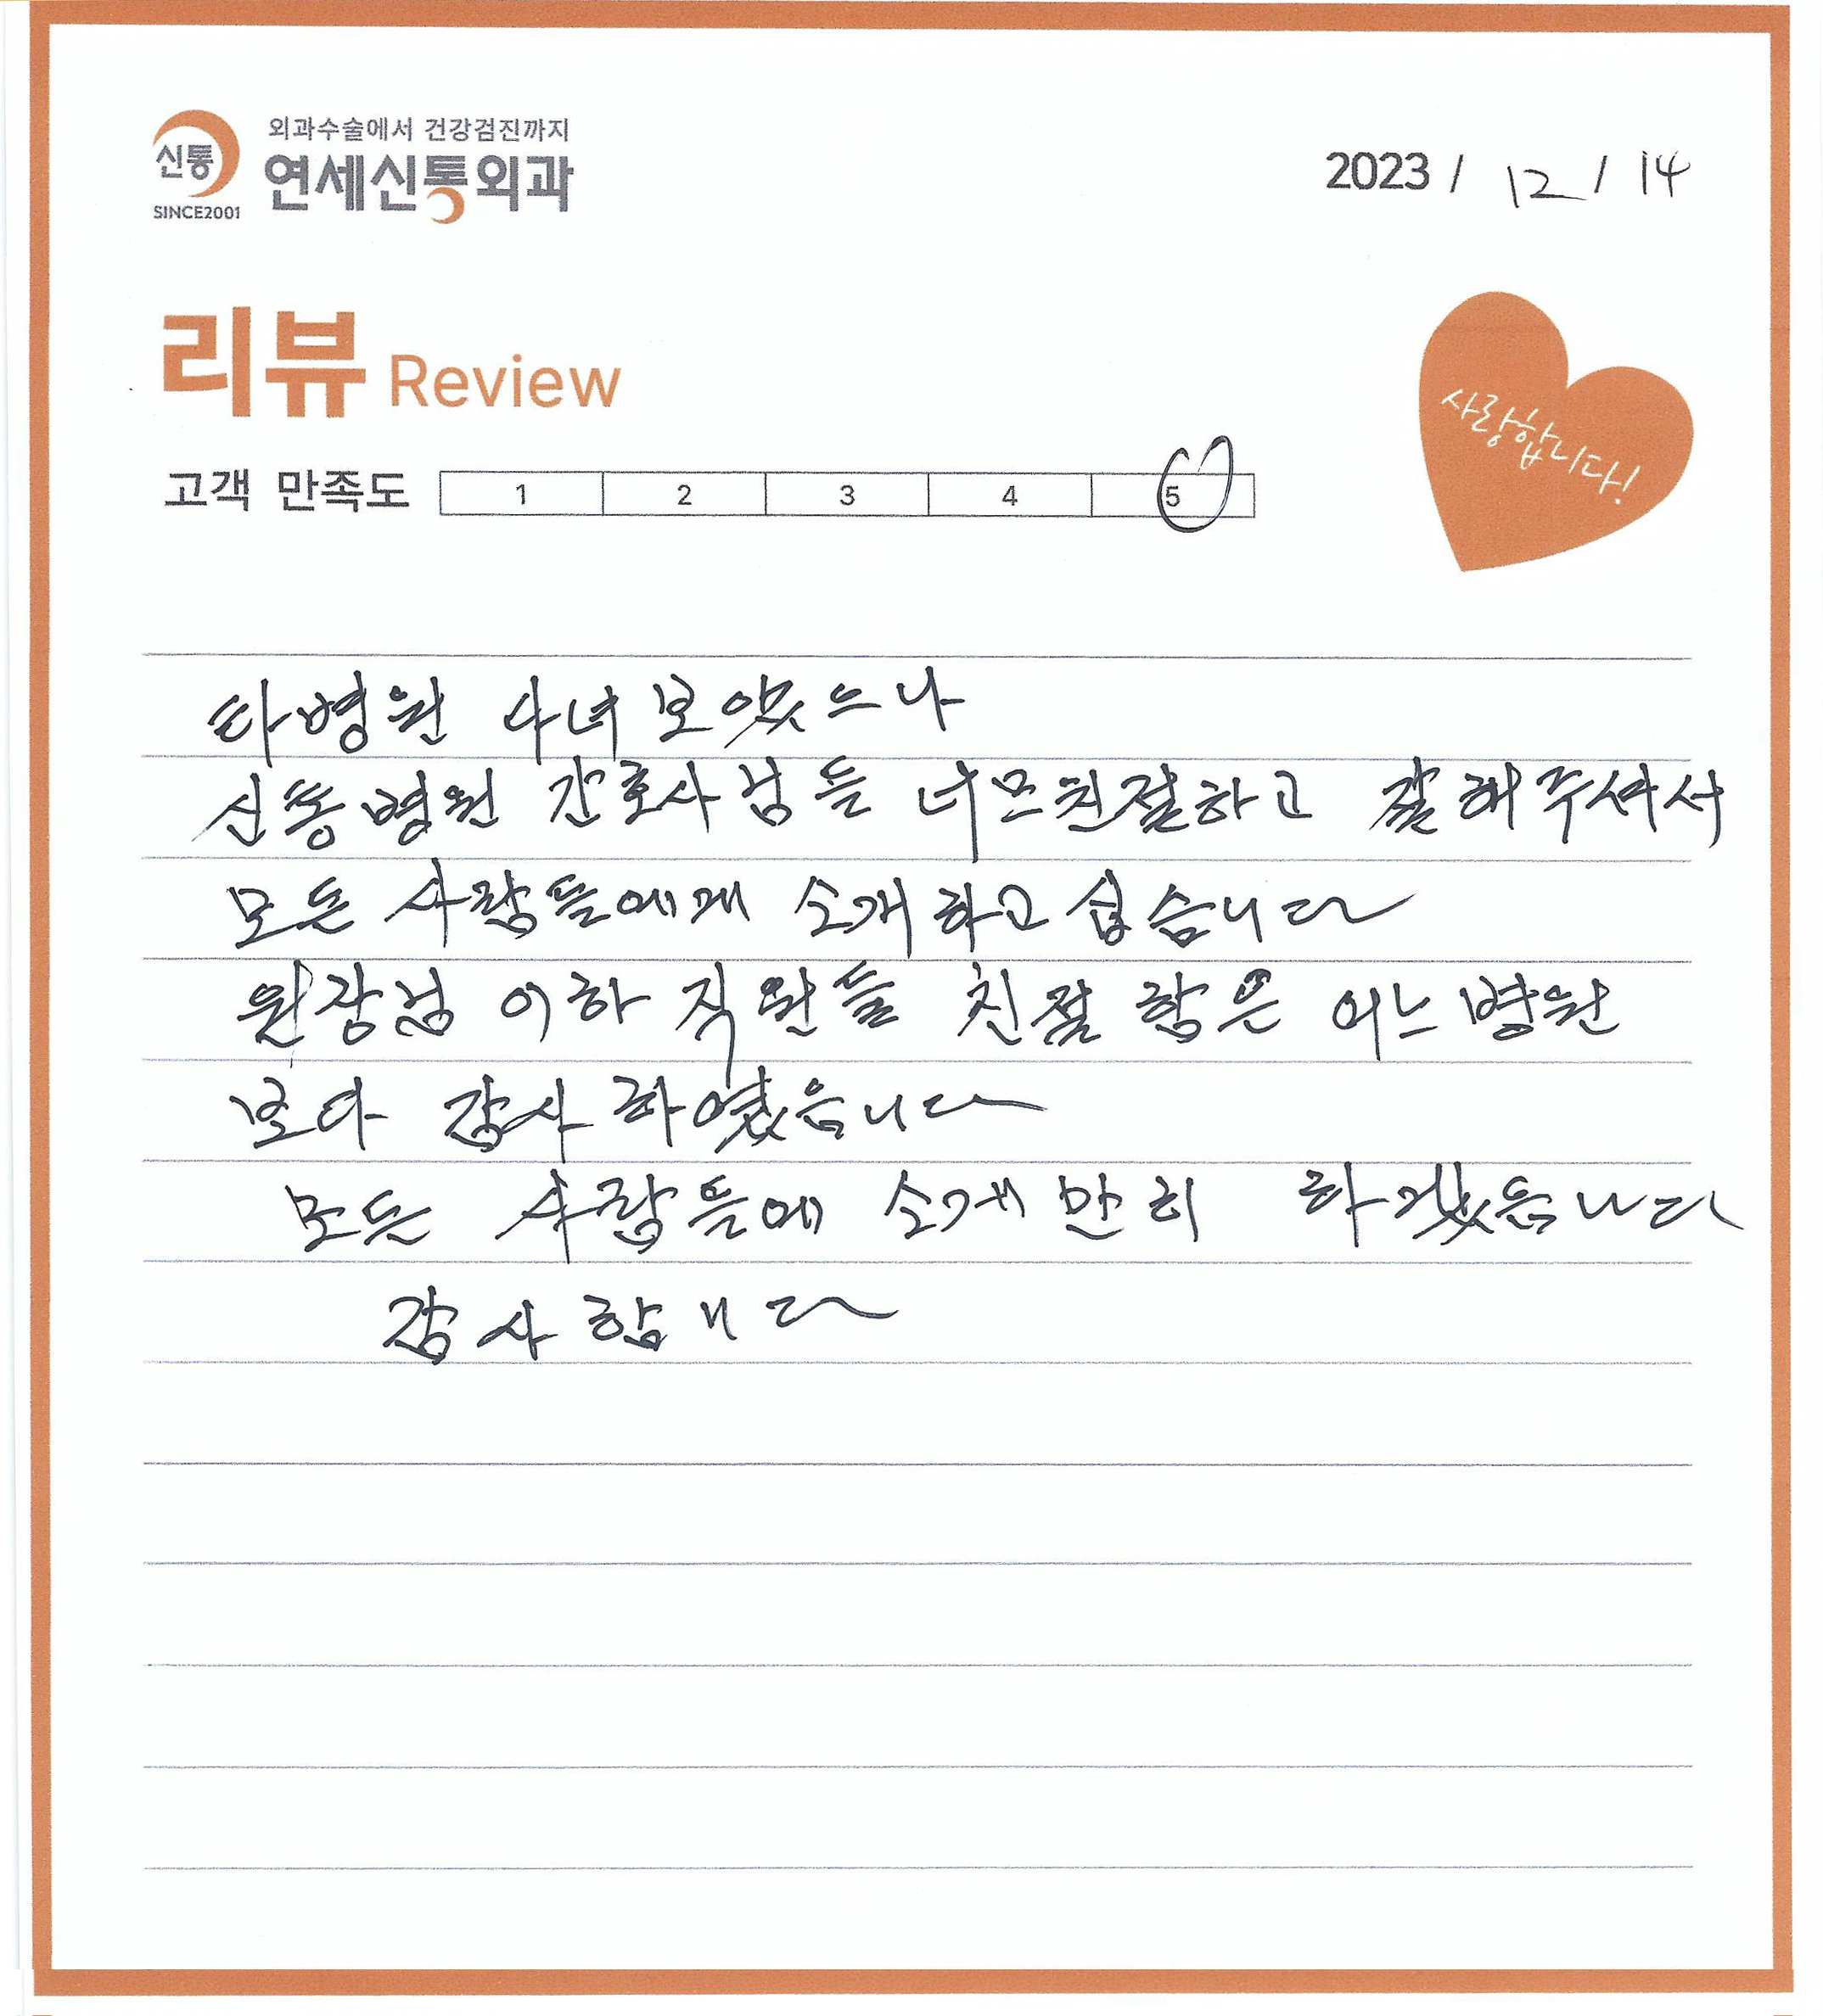 외과수술에서 건강검진까지
신통 연세신통외과
SINCE2001
2023 / 12 / 14
리뷰 Review
사랑합니다!
고객 만족도 1 2 3 4 5
타병원 다녀 보았으나
신통병원 간호사님들 너므친절하고 잘해주셔서
모든 사람들에게 소개하고 싶습니다
원장님 이하 직원들 친절 함은 어느 병원
보다 감사 하였읍니다
모든 사람들에 소게 만히 하겠읍니다
감사합니다